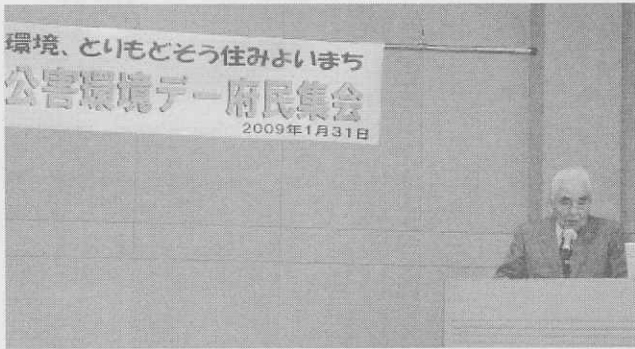 環境、とりもどそう住みよいまち
公害環境デー府民集会
2009年1月31日